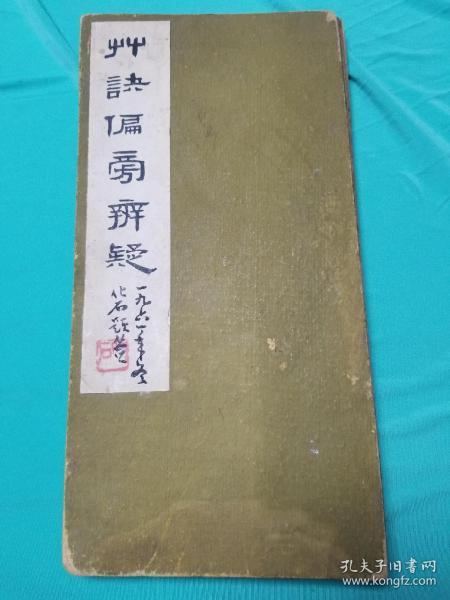 艸訣偏旁辨疑
一九六一年冬
化石題簽
孔夫子旧书网
www.kongfz.com